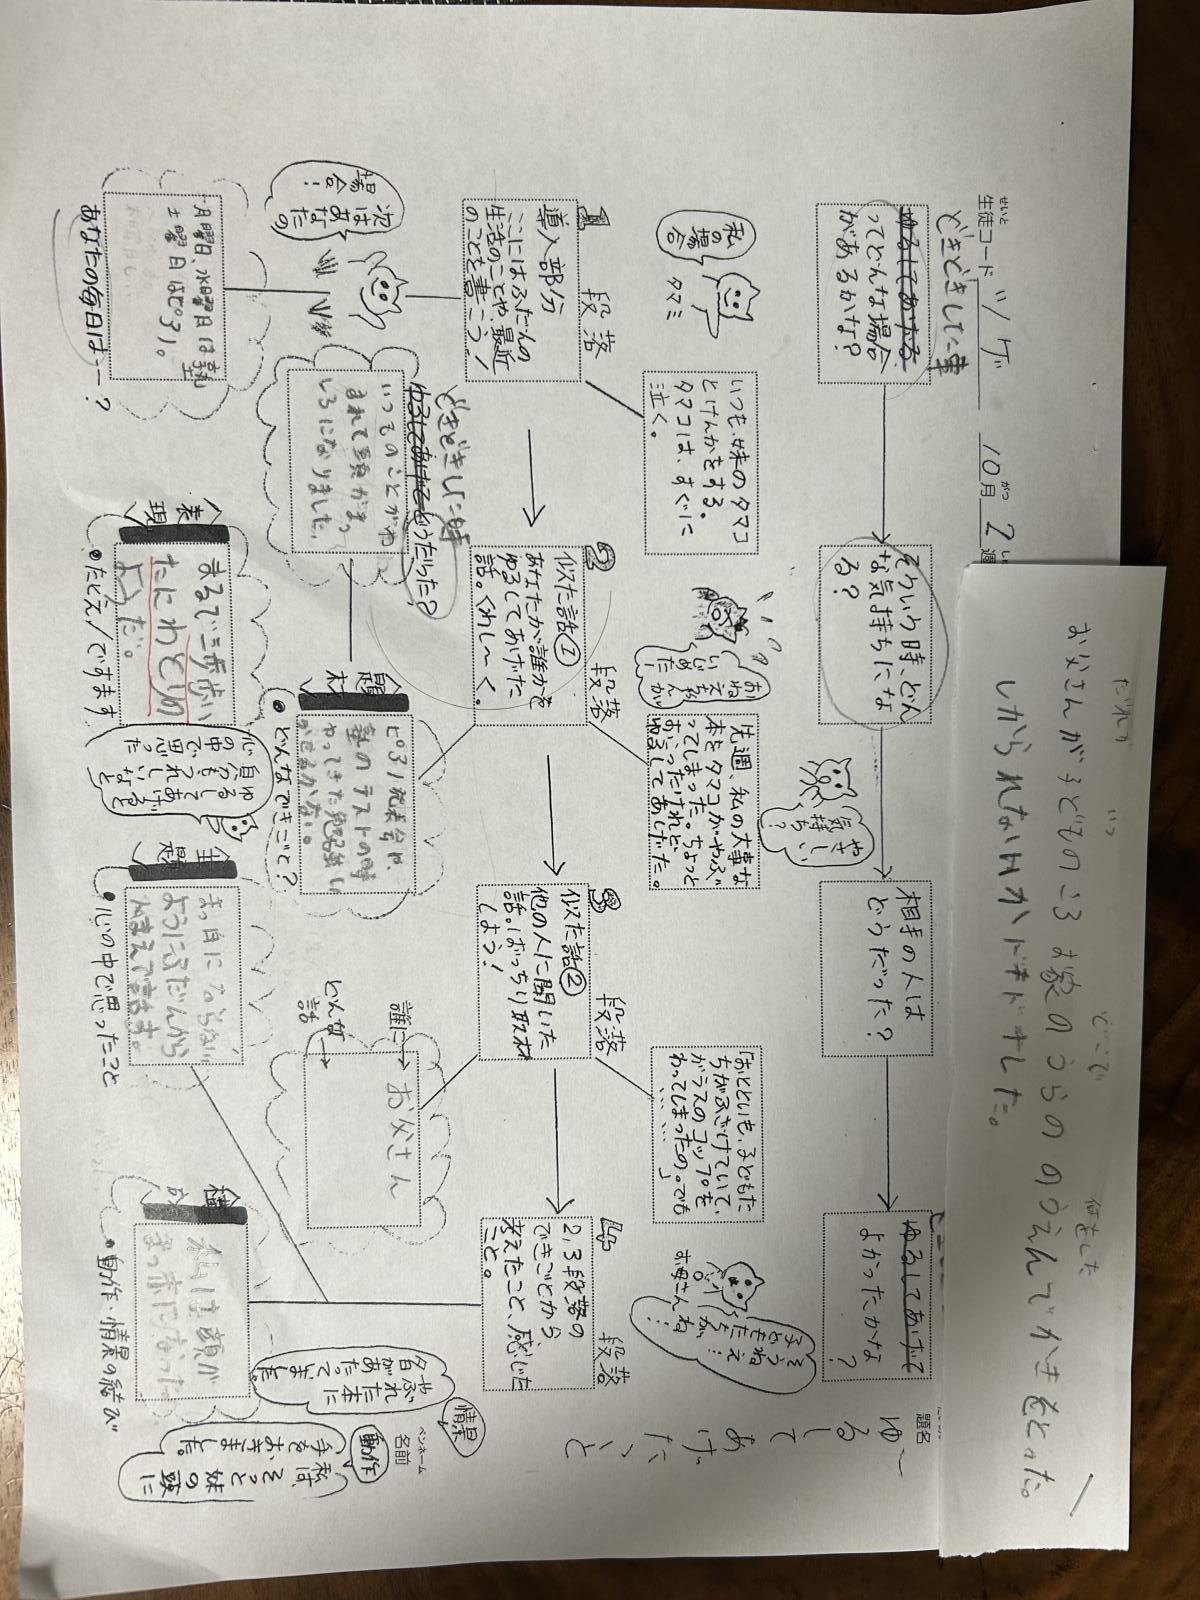 せいと
生徒コード ツゲ
10月2週
がつ
どきどきした事
ゆるしてあげる
ってどんな場合
があるかな?
そういう時、どん
な気持ちにな
る?
相手の人は
どうだった?
ゆるしてあげて
よかったかな
?
題名
ゆ〜
るして
あげ
たこと
ペンネーム
名前
私の
場合
タマミ
いつも、妹のタマコ
とけんかをする。
タマコは、すぐに
泣く。
おねえちゃんが
いじめた!
先週、私の大事な
本をタマコがやぶ
ってしまった。ちょっと
おこったけれど、
ゆるしてあげた。
やさしい
気持ち?
「おとといも、子どもた
ちがふざけていて、
ガラスのコップを
わってしまったの。でも
・・・・・」
お母さんね
そうねえ!
子どもたち
が、
1段落
導入部分
ここにはふだんの
生活のことや、最近
のことを書こう!
2段落
似た話①
あなたが誰かを
ゆるしてあげた
話。くわし〜く
3段落
似た話②
他の人に聞いた
話。ばっちり取材
しよう!
4段落
2,3段落の
できごとから
考えたこと、感じた
こと。
次は
あなたの
場合!
月曜日、水曜日は塾
土曜日はピアノ。
あなたの毎日は――?
どきどきした時
ゆるしてあげてどうだった?
いつものことがわ
すれて頭がまっ
しろになりました。
題材
ピアノ発表会や、
塾のテストの時
やってきた勉強い
かせるかな。
●どんなできごと?
誰に→
お父さん
どんな→
話
表現
まるで三歩歩い
たにわとりの
ようだ。
●たとえ/ですます
ゆるしてあげると
自分もうれしいなと
心の中で思った
主題
まっ白にならない
ようにふだんから
かまえておきます。
●心の中で思ったこと
構成
私は顔が
まっ赤になった。
●動作・情景の結び
情景
やぶれた本に
夕日があたってました。
動作
私は、そっと妹の頭に
手をおきました。
だれが
いつ
どこで
何をした
お父さんが子どものころお家のうらのうえんでかきをとった。
しかられないかドキドキした。